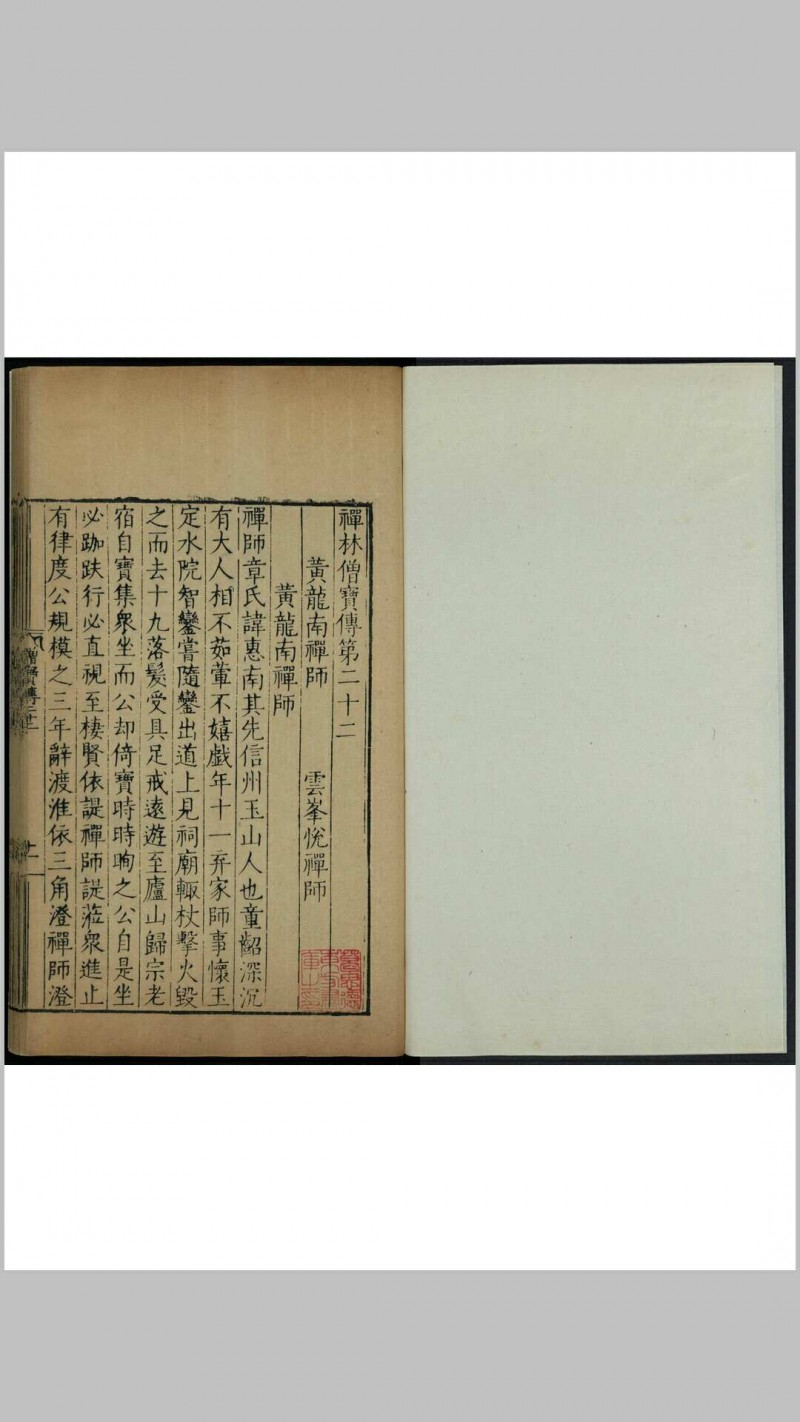 禪林僧寶傳第二十二
黃龍南禪師　雲峯悅禪師
黃龍南禪師
禪師章氏諱惠南其先信州玉山人也童齠深沉
有大人相不茹葷不嬉戲年十一弃家師事懷玉
定水院智鑾嘗隨鑾出道上見祠廟輙杖擊火毀
之而去十九落髮受具足戒遠遊至廬山歸宗老
宿自寶集衆坐而公却倚寶時時眴之公自是坐
必跏趺行必直視至棲賢依諟禪師諟蒞衆進止
有律度公規模之三年辭渡淮依三角澄禪師澄